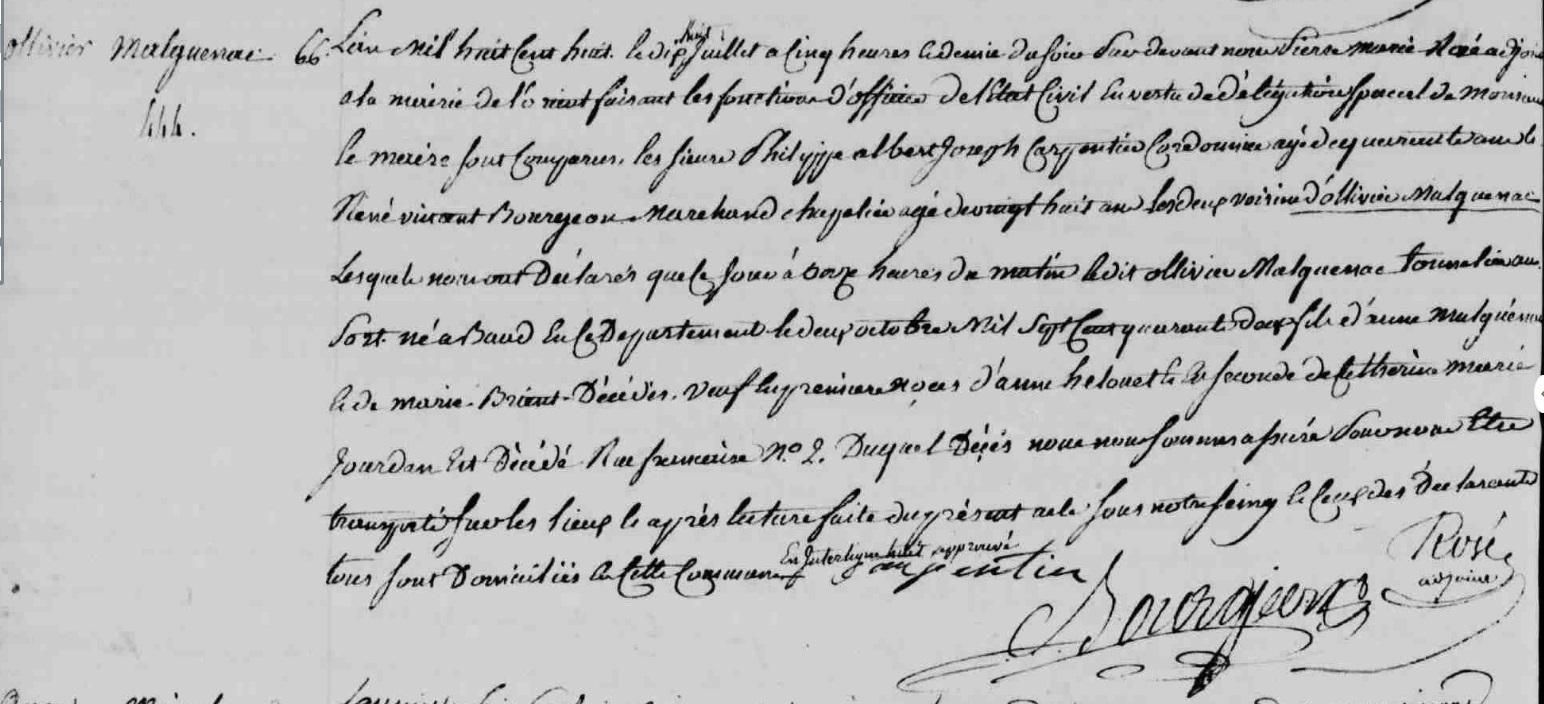 ollivier Malguenac 66.
444.
L'an Mil huit Cent huit. le dix huit Juillet a Cinq heures & demie du soir Par devant nous Pierre marie Rosé adjoint
a la mairie de l'orient faisant les fonctions d'officier de l'Etat Civil En vertu de délégation special de Monsieur
le maire sont Comparus. les sieurs Philippe albert Joseph Carpentier Cordonnier agé de quarente ans &
René vincent Bourgeon Marchand chapelier agé de vingt huit ans les deux voisins d'ollivier Malguenac
Lesquels nous ont Déclarés que Ce Jour à onze heures du matin ledit ollivier Malguenac Tonnelier au
Port. né a Baud En Ce Departement le deux octobre Mil Sept Cent quarante deux fils d'anne Malguénac
& de marie Briant Décédés. veuf En premiere noces d'anne helouet & En seconde de Catherine marie
Jourdan Est Décédé Rue francaise No. 2. Duquel Décès nous nous sommes assuré Pour nous Etre
transporté sur les lieux & après lecture faite du présent acte sous notre seing & Ceux des Déclarants
tous sont Domiciliés En Cette Commune En Interligne huit approuvé
Carpentier Bourgeon Rosé
adjoint